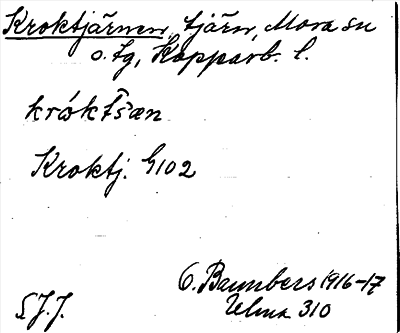 Kroktjärnen, tjärn, Mora sn
o. tg, Kopparb. l.
króktšæn
Kroktj. G102
O. Bannbers 1916-17
Ulma 310
S.J.J.